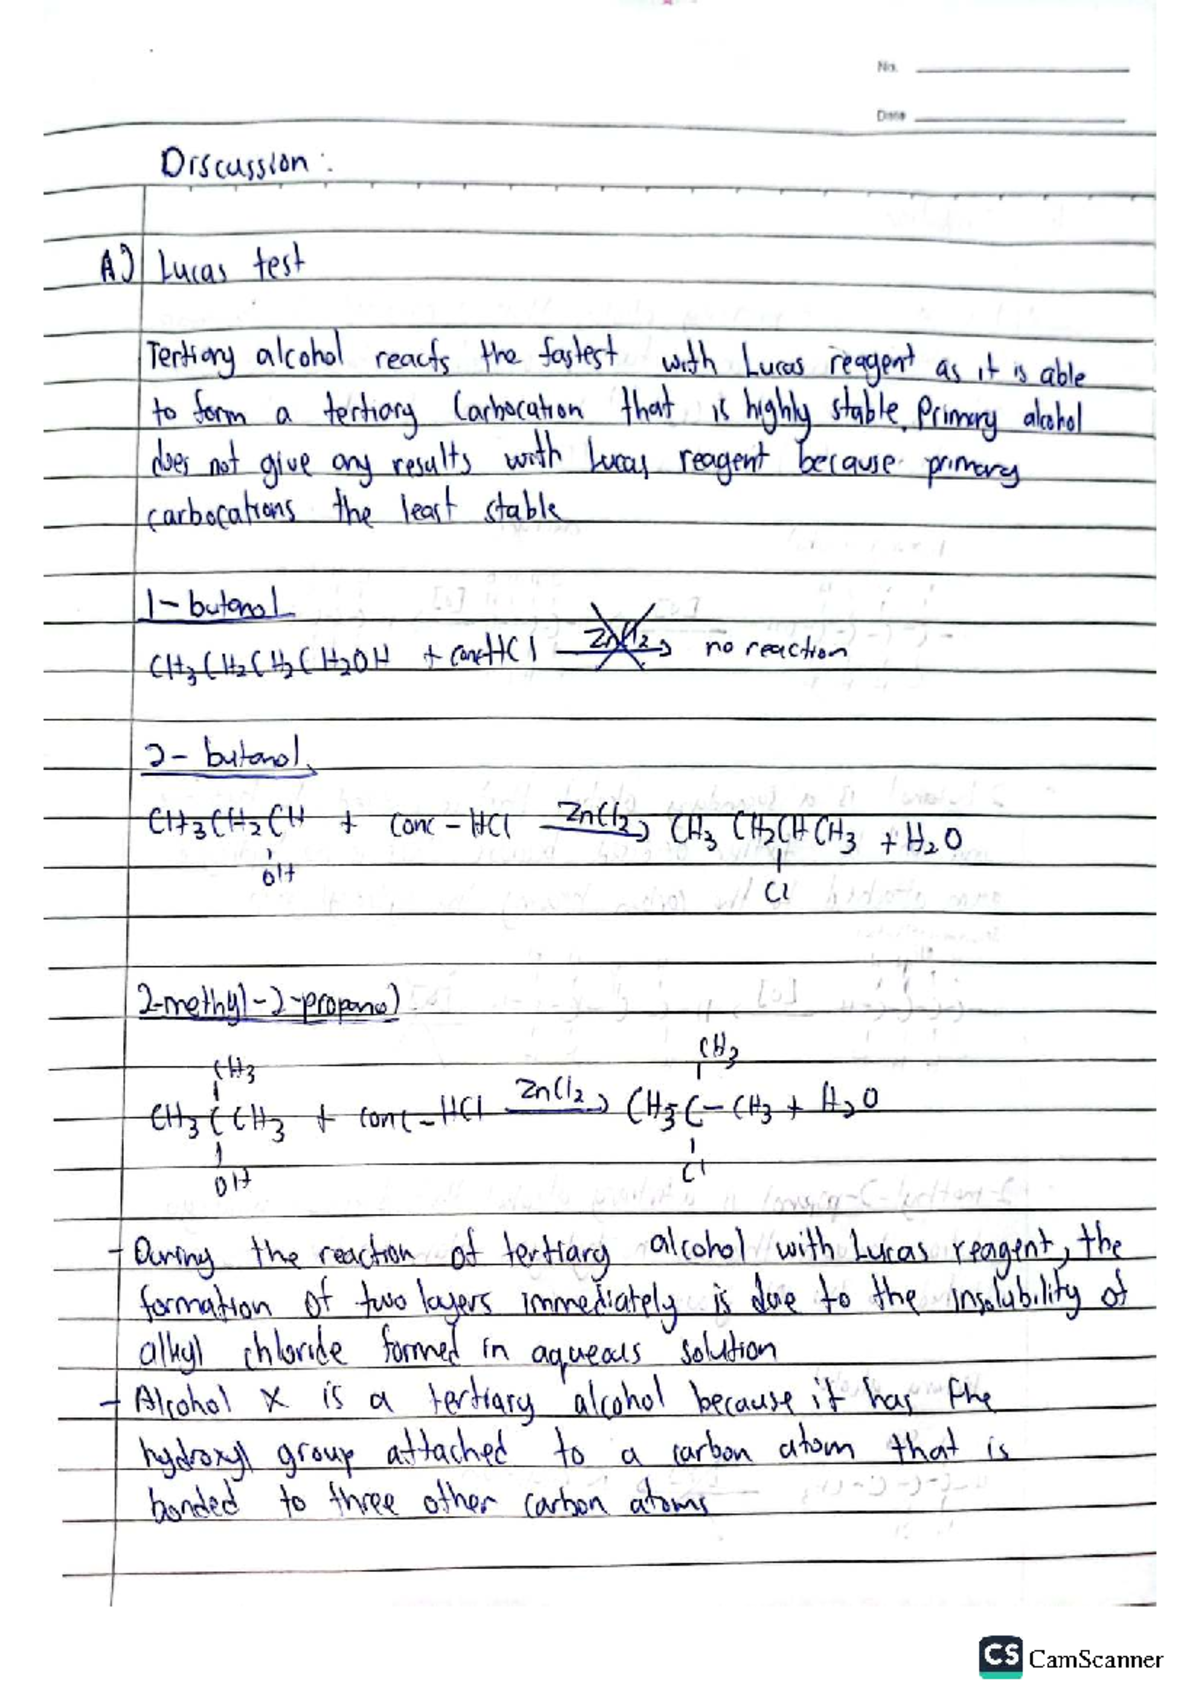 No.
Date
Discussion :
A) Lucas test
Tertiary alcohol reacts the fastest with Lucas reagent as it is able
to form a tertiary carbocation that is highly stable. Primary alcohol
does not give any results with Lucas reagent because primary
carbocations the least stable
1-butanol
CH3CH2CH2CH2OH + conc-HCl ZnCl2 no reaction
2-butanol
CH3CH2CH + conc-HCl ZnCl2 CH3CH2CHCH3 + H2O
OH Cl
2-methyl-2-propanol
CH3 CH3
CH3CCH3 + conc-HCl ZnCl2 CH3C-CH3 + H2O
OH Cl
- During the reaction of tertiary alcohol with Lucas reagent, the
formation of two layers immediately is due to the insolubility of
alkyl chloride formed in aqueous solution
- Alcohol X is a tertiary alcohol because it has the
hydroxyl group attached to a carbon atom that is
bonded to three other carbon atoms
CS CamScanner